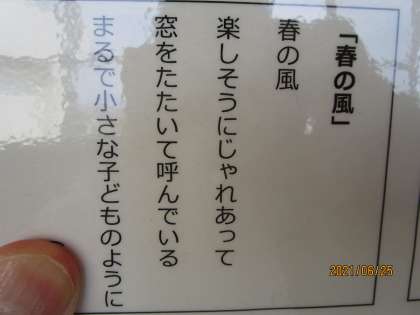 「春の風」
春の風
楽しそうにじゃれあって
窓をたたいて呼んでいる
まるで小さな子どものように
2021/06/25